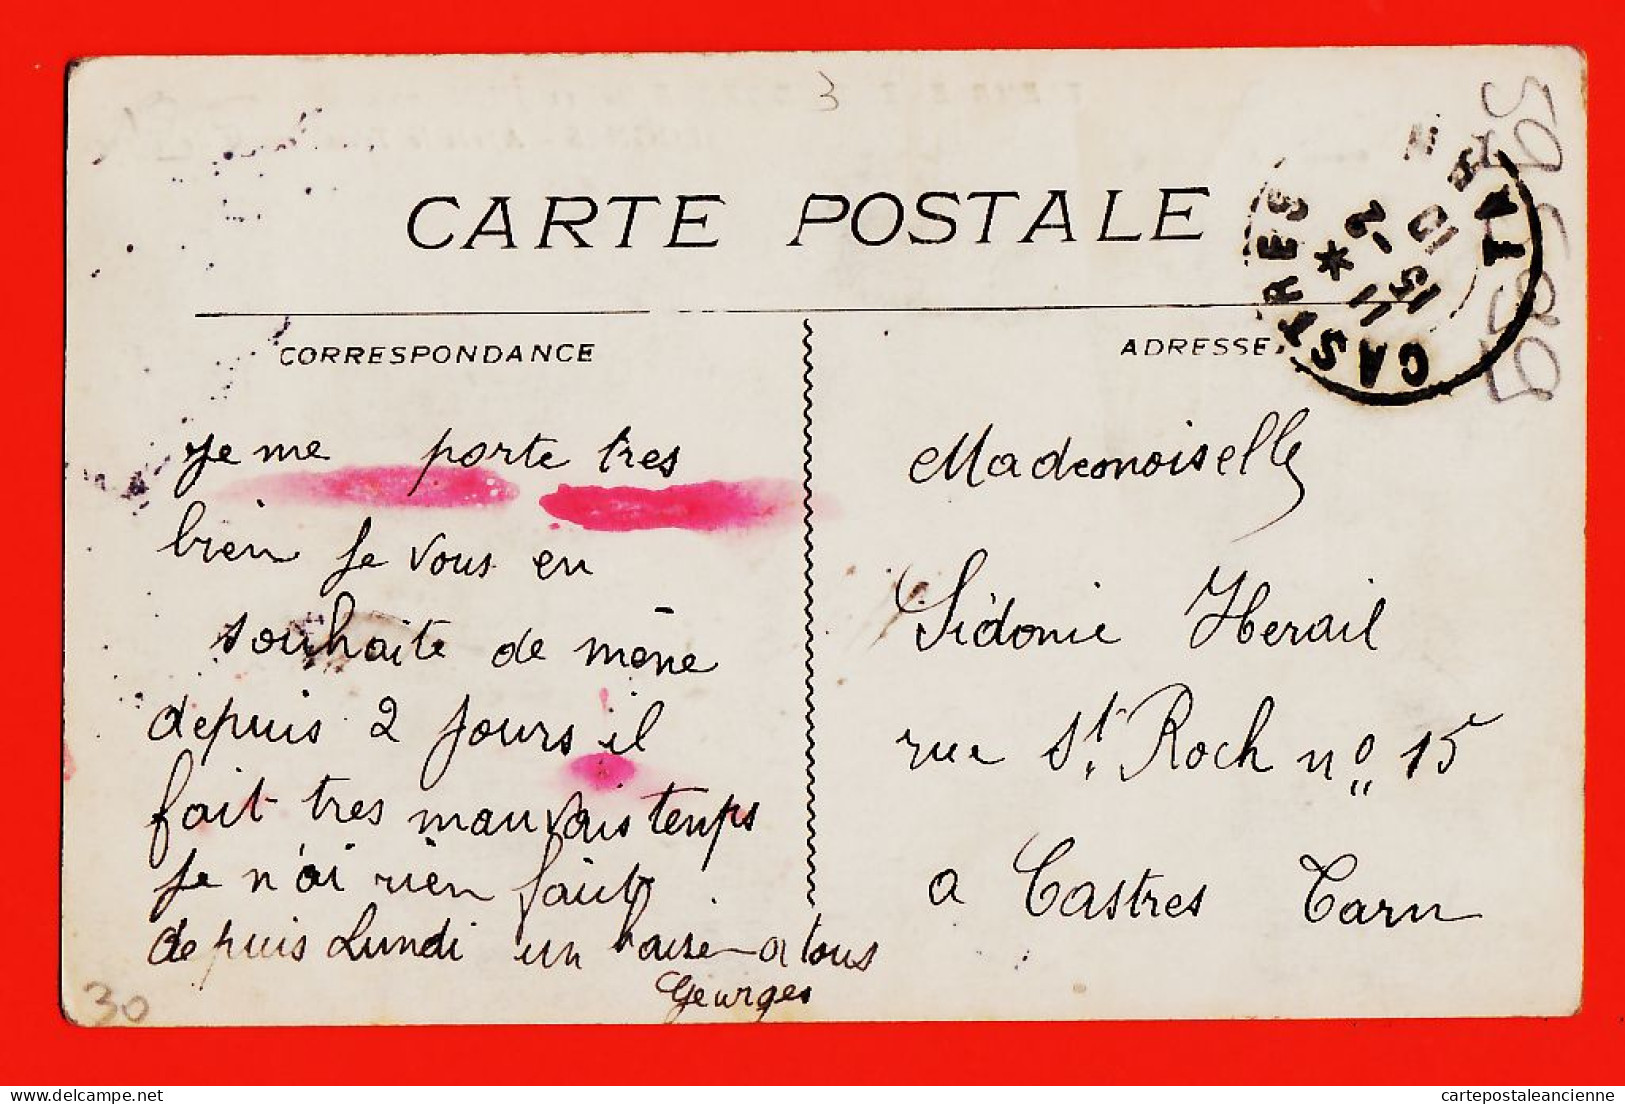 3
CARTE POSTALE
CASTRES TARN
15 10
11 -2
*
CORRESPONDANCE
ADRESSE
je me porte tres
bien Je vous en
souhaite de mēne
depuis 2 Jours il
fait tres mauvais temps
Je n'ai rien fait
depuis Lundi un baiser a tous
Georges
Mademoiselle
Sidonie Herail
rue St. Roch no 15
a Castres Tarn
30
Delcampe.net
cartepostaleancienne